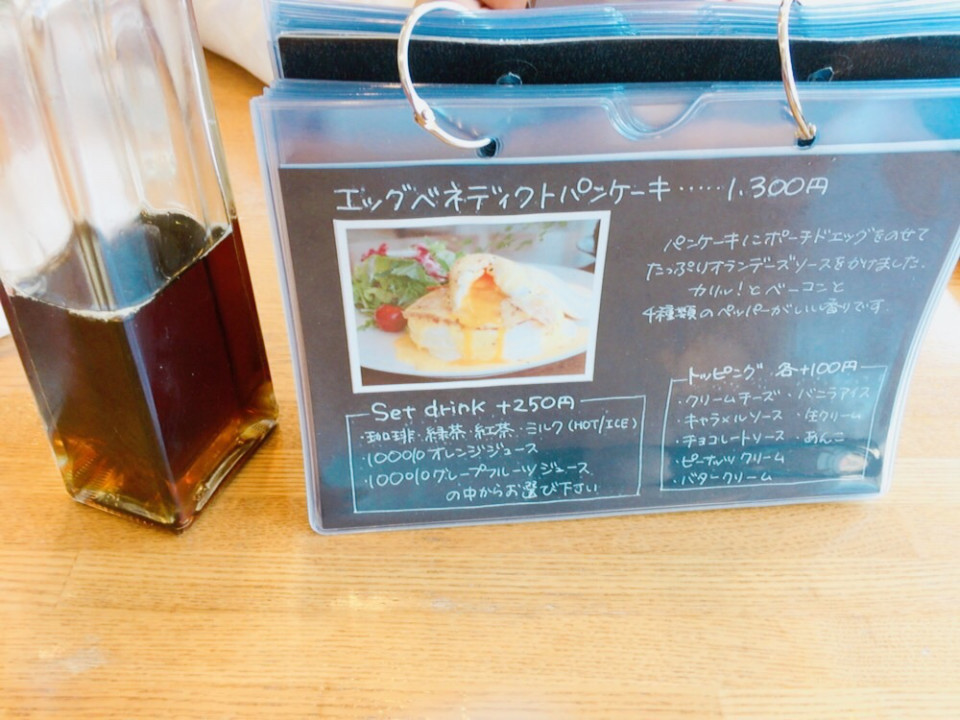 エッグベネディクトパンケーキ・・・・・1,300円
パンケーキにポーチドエッグをのせて
たっぷりオランデーズソースをかけました。
カリッ!とベーコンと
4種類のペッパーがいい香りです
Set drink +250円
・珈琲・緑茶・紅茶・ミルク(HOT/ICE)
・100%オレンジジュース
・100%グレープフルーツジュース
の中からお選び下さい
トッピング 各+100円
・クリームチーズ ・バニラアイス
・キャラメルソース ・生クリーム
・チョコレートソース ・あんこ
・ピーナッツクリーム
・バタークリーム